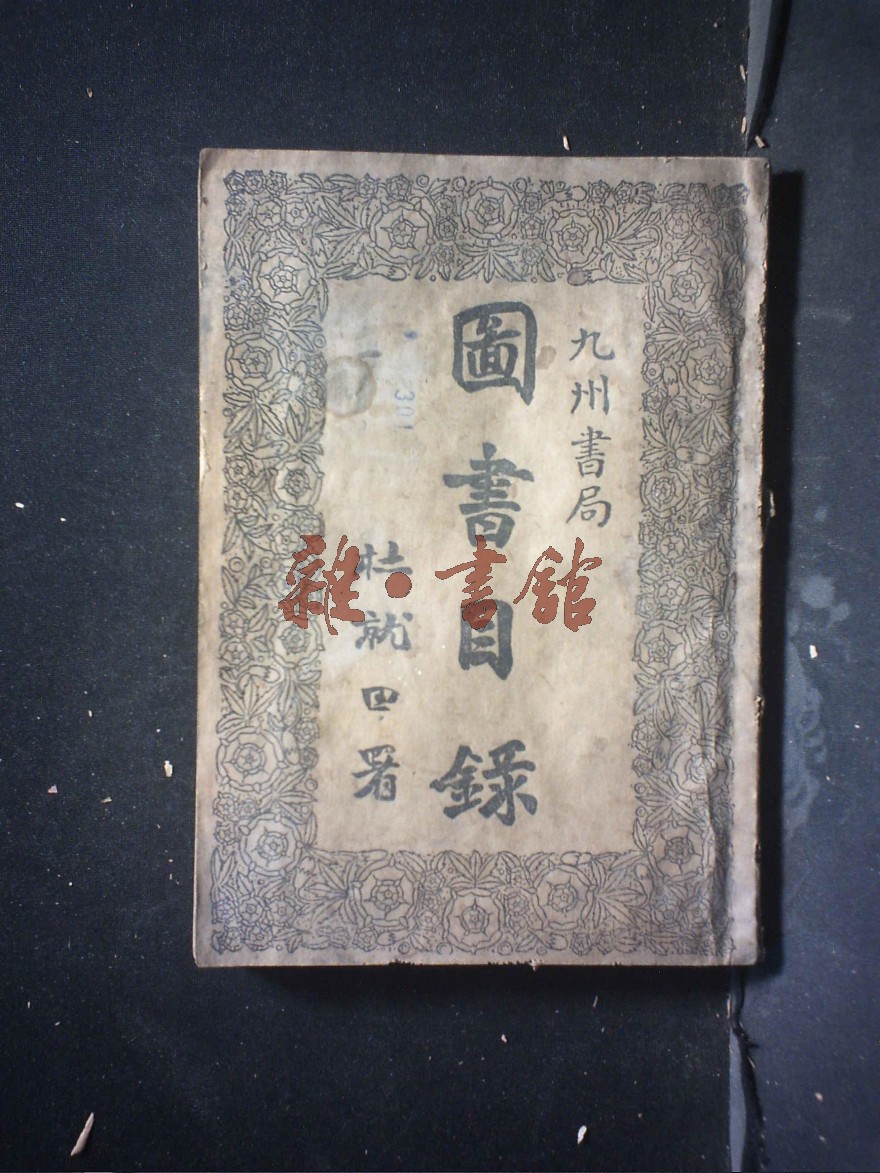 九州書局
圖書目錄
杜就田署
301
雜·書館